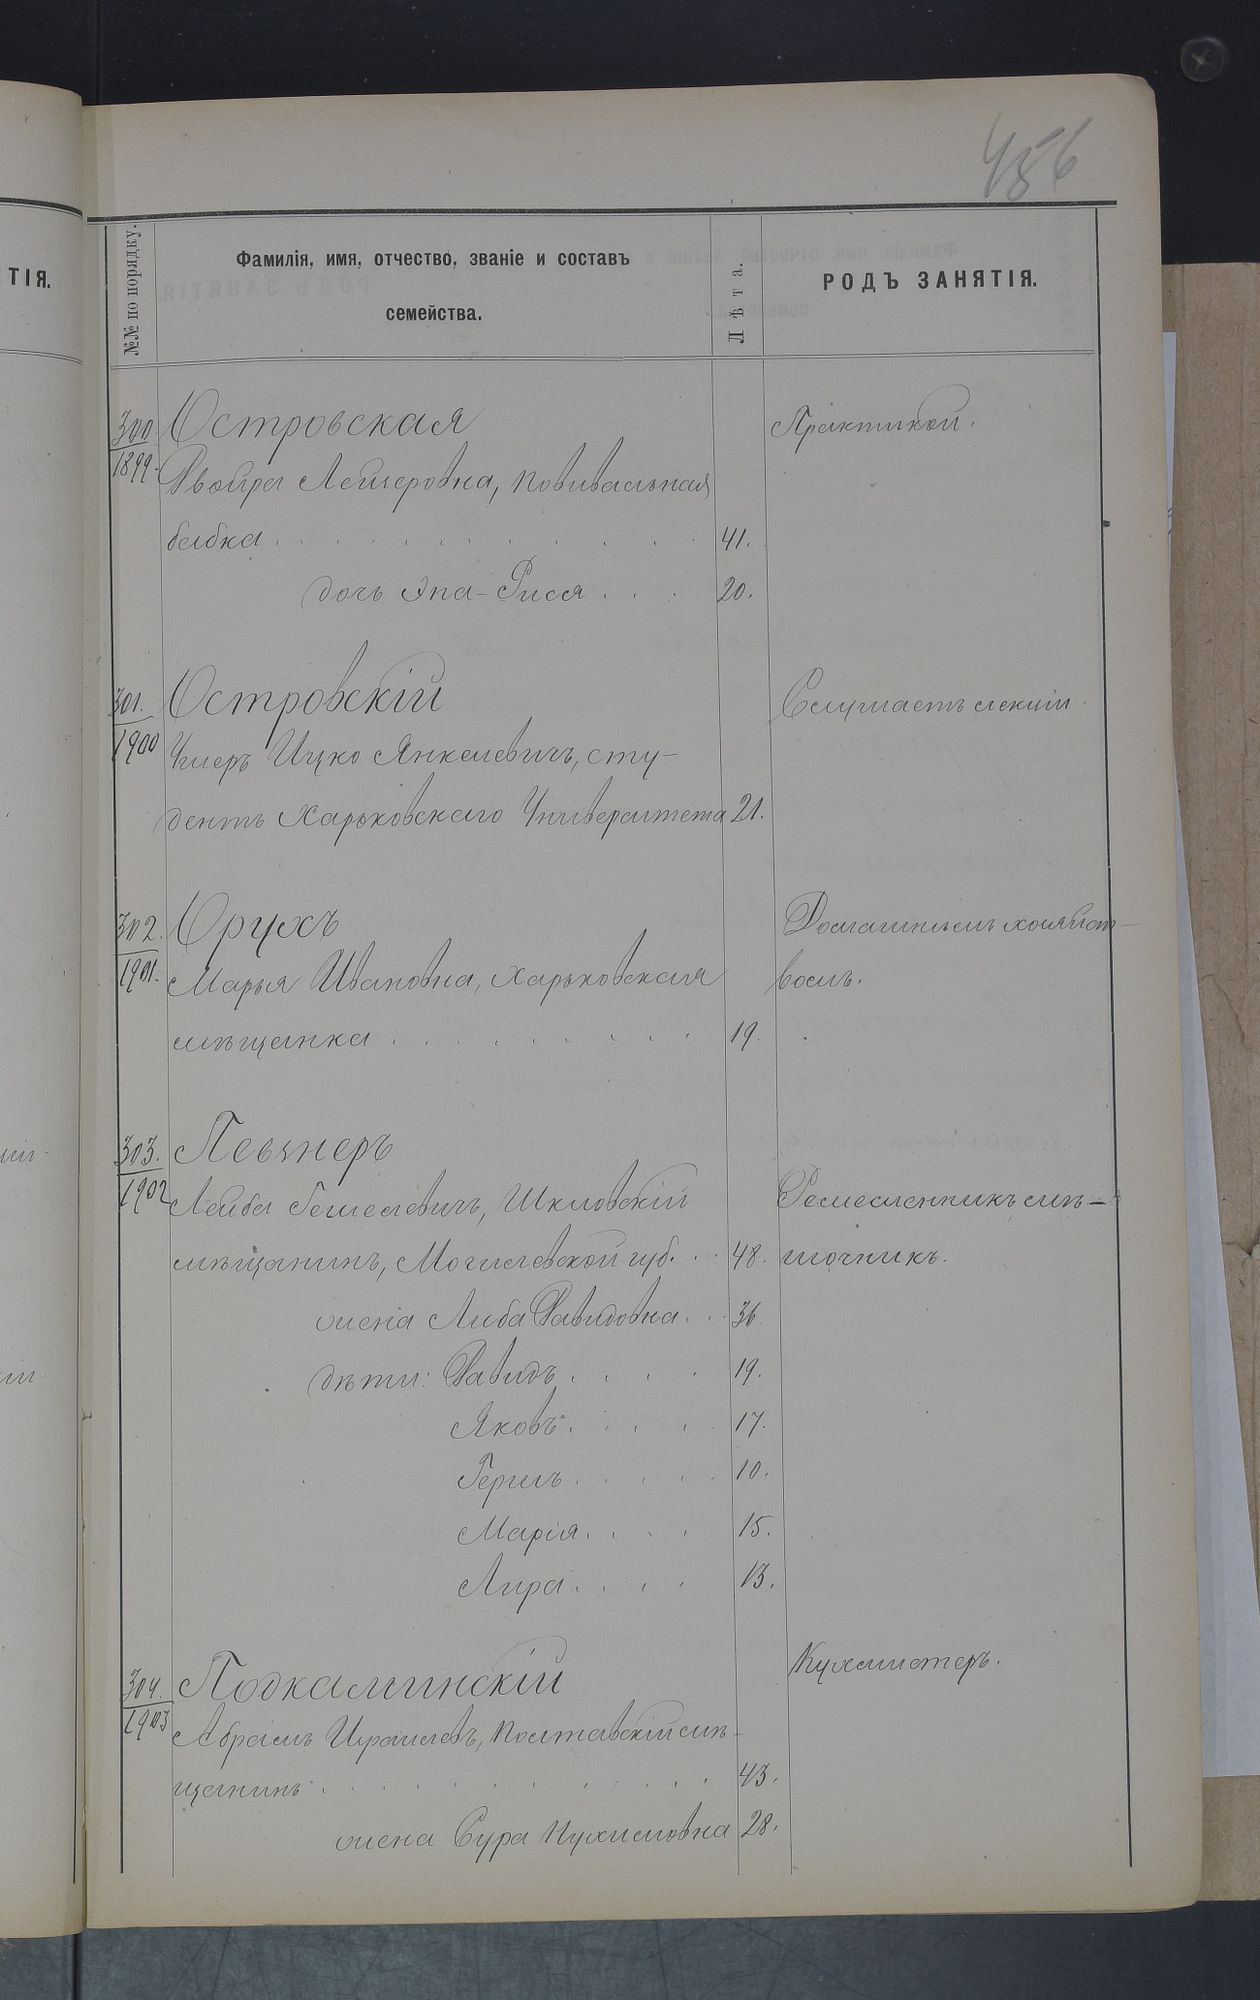 456
ТІЯ.
№№ по порядку.
Фамилія, имя, отчество, званіе и составъ
семейства.
Лѣта.
РОДЪ ЗАНЯТІЯ.
300 Островская Практикой.
1899 Двойра Лейзеровна, повивальная
бабка 41.
дочь Эпа-Рися 20.
301. Островскій Слушаетъ лекціи.
1900 Ицко Янкелевичъ, сту-
дентъ Харьковскаго Университета 21.
302. Орухъ Домашнимъ хозяйст-
1901. Марья Ивановна, Харьковская вомъ.
мѣщанка 19.
303. Певзнеръ
1902 Лейба Гешелевичъ, Шкловскій Ремесленникъ
мѣщанинъ, Могилевской губ. 48.
жена Либа Давидовна 36.
дѣти: Давидъ 19.
Яковъ 17.
Гершъ 10.
Марія 15.
Лира 13.
304. Подкаминскій Кухмистеръ.
1903 Абрамъ Израилевъ, Полтавскій мѣ-
щанинъ 43.
жена Сура 28.